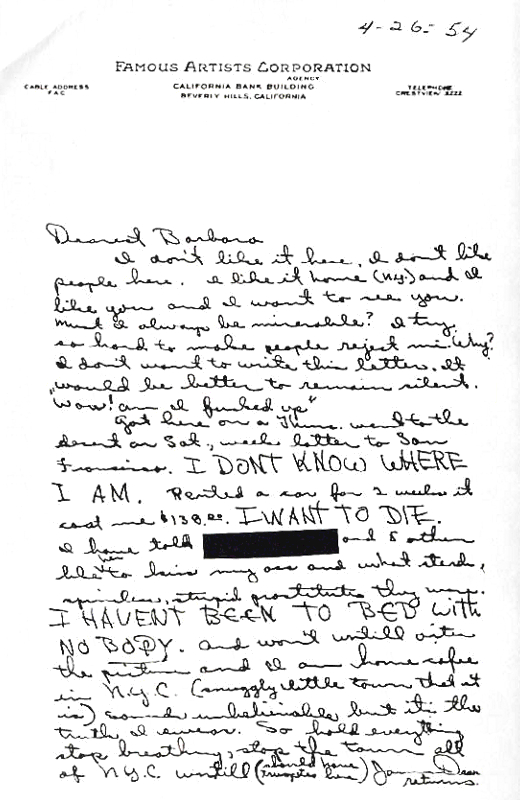 4-26-54
FAMOUS ARTISTS CORPORATION
AGENCY
CABLE ADDRESS
FAC
CALIFORNIA BANK BUILDING
BEVERLY HILLS, CALIFORNIA
TELEPHONE
CRESTVIEW 2222
Dearest Barbara
I don't like it here. I don't like
people here. I like it home (N.Y.) and I
like you and I want to see you.
Must I always be miserable? I try
so hard to make people reject me. Why?
I don't want to write this letter. It
would be better to remain silent.
"Wow! am I fucked up"
Got here on a Thurs. went to the
desert on Sat., week latter to San
Francisco. I DONT KNOW WHERE
I AM. Rented a car for 2 weeks it
cost me $138.00. I WANT TO DIE.
I have told and 5 others
like her to kiss my ass and what sterile,
spineless, stupid prostitutes they were.
I HAVENT BEEN TO BED WITH
NO BODY. and won't untill after
the picture and I am home safe
in N.Y.C. (snuggly little town that it
is) sounds unbelievable but it's the
truth I swear. So hold everything
stop breathing, stop the town all
of N.Y.C. untill (should have
trumpets here) James Dean
returns.